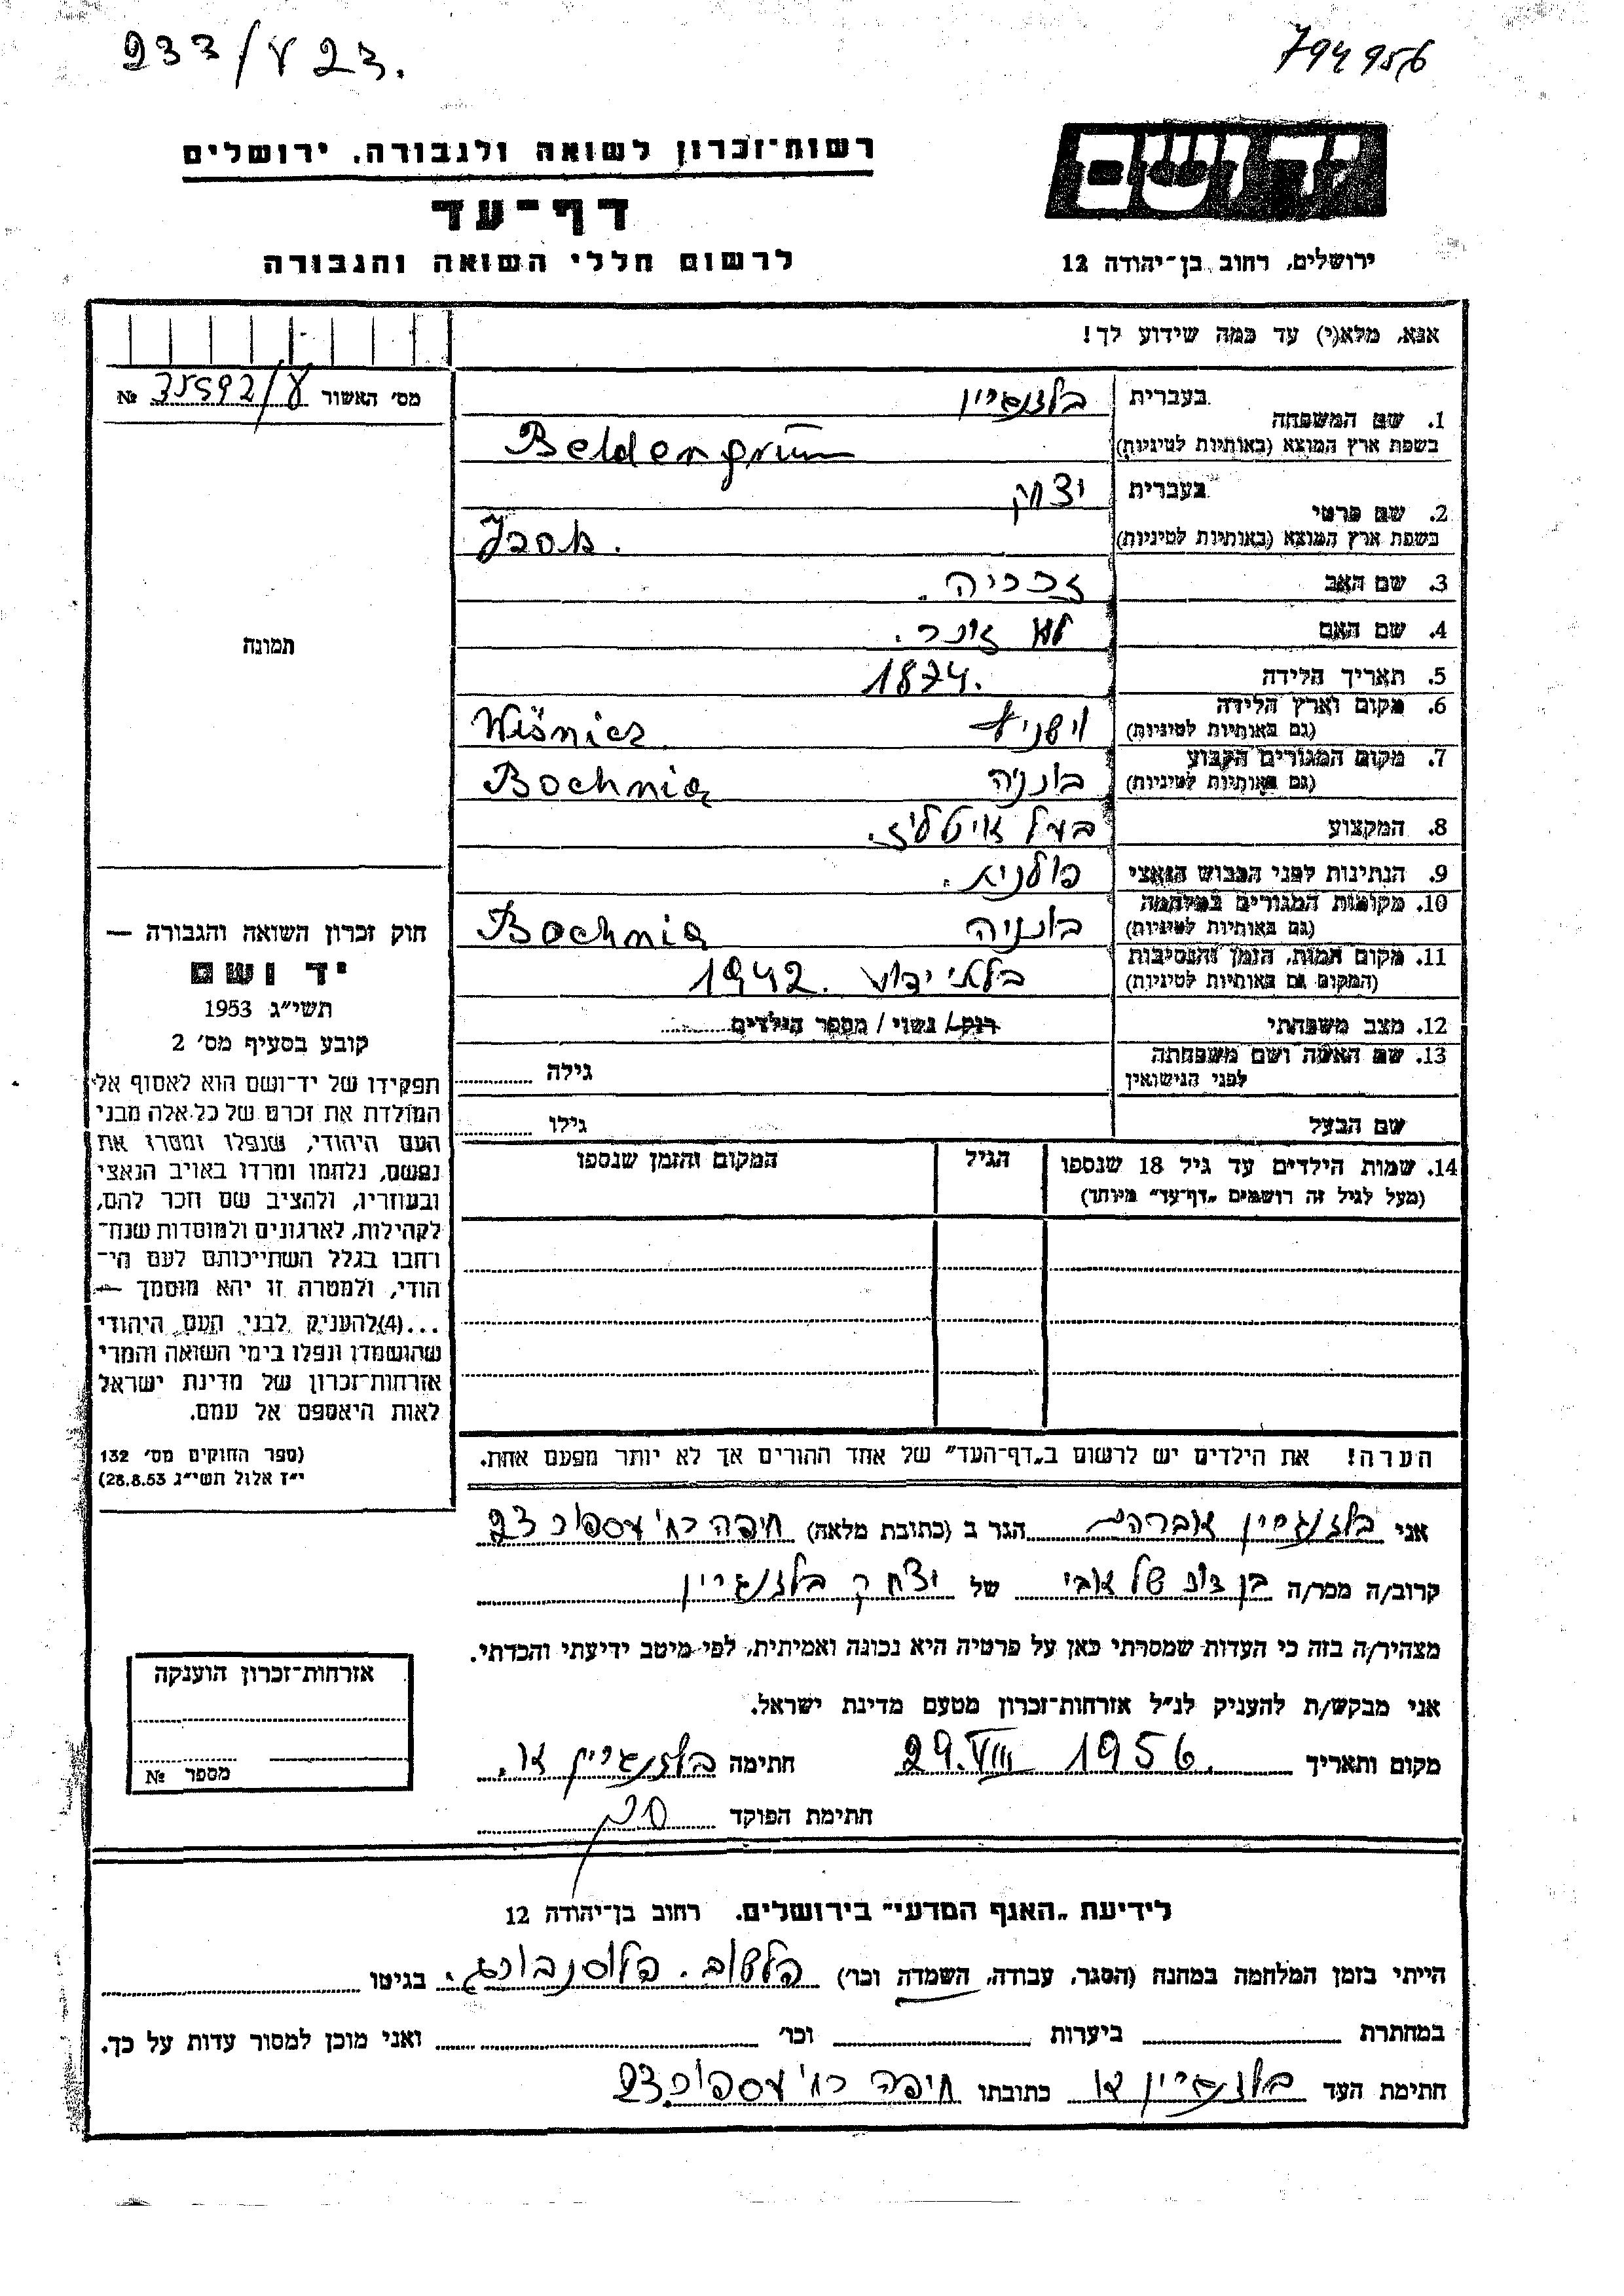 233/ע 23.
794956
רשות־זכרון לשואה ולגבורה, ירושלים
דף־עד
לרשום חללי השואה והגבורה
יד ושם
ירושלים, רחוב בן־יהודה 12
אנא, מלא(י) עד כמה שידוע לך!
מס׳ האשור 35592/ע №
1. שם המשפחה
בעברית בלדנגרין
בשפת ארץ המוצא (באותיות לטיניות) Beldengrün
2. שם פרטי
בעברית יצחק
בשפת ארץ המוצא (באותיות לטיניות)
3. שם האב זכריה.
4. שם האם לא זוכר.
5. תאריך הלידה 1874.
6. מקום וארץ הלידה (גם באותיות לטיניות) Wiśnicz
7. מקום המגורים הקבוע (גם באותיות לטיניות) בוכניה Bochnia
8. המקצוע בעל איטליז.
9. הנתינות לפני הכבוש הנאצי פולנית.
10. מקומות המגורים במלחמה (גם באותיות לטיניות) בוכניה Bochnia
11. מקום המות, הזמן והנסיבות (המקום גם באותיות לטיניות) בלתי ידוע. 1942
12. מצב משפחתי רוק/ נשוי / מספר הילדים
13. שם האשה ושם משפחתה לפני הנישואין גילה
שם הבעל גילו
14. שמות הילדים עד גיל 18 שנספו (מעל לגיל זה רושמים „דף־עד״ מיוחד)
הגיל
המקום והזמן שנספו
הערה! את הילדים יש לרשום ב„דף־העד״ של אחד ההורים אך לא יותר מפעם אחת.
תמונה
חוק זכרון השואה והגבורה —
יד ושם
תשי״ג 1953
קובע בסעיף מס׳ 2
תפקידו של יד־ושם הוא לאסוף אל
המולדת את זכרם של כל־אלה מבני
העם היהודי, שנפלו ומסרו את
נפשם, נלחמו ומרדו באויב הנאצי
ובעוזריו, ולהציב שם וזכר להם,
לקהילות, לארגונים ולמוסדות שנח־
רחבו בגלל השתייכותם לעם הי־
הודי, ולמטרה זו יהא מוסמך —
...(4)להעניק לבני העם היהודי
שהושמדו ונפלו בימי השואה והמרי
אזרחות־זכרון של מדינת ישראל
לאות היאספם אל עמם.
(ספר החוקים מס׳ 132
י״ז אלול תשי״ג 28.8.53)
אני בלדנגרין אברהם הגר ב (כתובת מלאה) חיפה רח׳ 23
קרוב/ה מכר/ה בן דוד של אבי של יצחק בלדנגרין
מצהיר/ה בזה כי העדות שמסרתי כאן על פרטיה היא נכונה ואמיתית, לפי מיטב ידיעתי והכרתי.
אני מבקש/ת להעניק לנ״ל אזרחות־זכרון מטעם מדינת ישראל.
מקום ותאריך 29.VIII 1956. חתימה בלדנגרין א.
חתימת הפוקד
אזרחות־זכרון הוענקה
מספר №
לידיעת „האגף המדעי״ בירושלים, רחוב בן־יהודה 12
הייתי בזמן המלחמה במחנה (הסגר, עבודה, השמדה וכו׳) פלשוב. פלוסנבורג. בגיטו
במחתרת ביערות וכו׳ ואני מוכן למסור עדות על כך.
חתימת העד בלדנגרין א כתובתו חיפה רח׳ 23